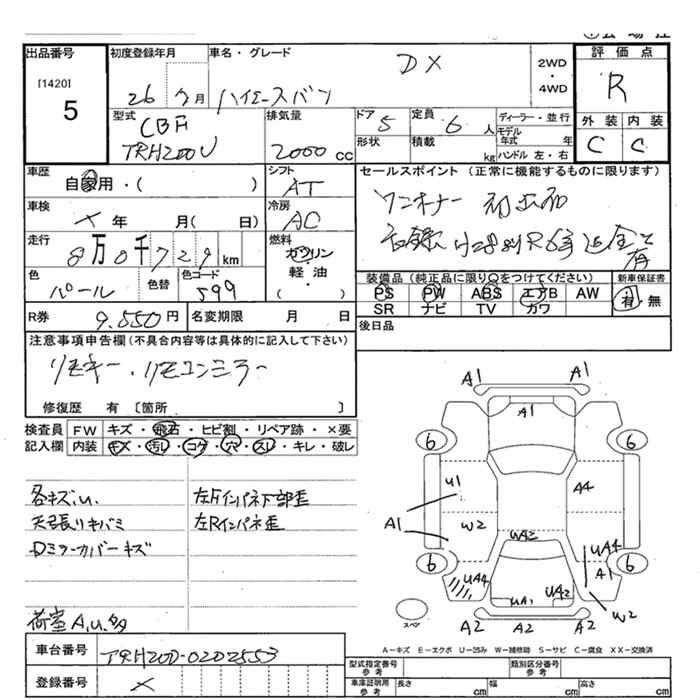 出品番号
[1420]
5
初度登録年月
26 年 7月
車名・グレード
DX
ハイエースバン
2WD
・
4WD
評価点
R
外装 内装
C C
型式
CBF
TRH200V
排気量
2000 cc
ドア 5
形状
定員 6 人
積載 kg
ディーラー・並行
モデル年式 年
ハンドル 左・右
車歴
自家用・( )
シフト
AT
セールスポイント (正常に機能するものに限ります)
ワンオーナー
車検
× 年 月( 日)
冷房
AC
走行
8万0千729km
燃料
ガソリン
軽油
( )
色
パール
色替
色コード
599
装備品(純正品に限りOをつけてください)
新車保証書
PS PW ABS エアB AW
SR ナビ TV カワ
有・無
R券 9.550円
名変期限 月 日
後日品
注意事項申告欄(不具合内容等は具体的に記入して下さい)
リモキー.リモコンミラー
修復歴 有 [箇所 ]
検査員 FW キズ・飛石・ヒビ割・リペア跡・×要
記入欄 内装 キズ・汚レ・コゲ・穴・スレ・キレ・破レ
各キズ.u.
左Fインパネ下部歪
天張りキバミ
左Rインパネ歪
Dミラーカバーキズ
荷室A,u,多
A1 A1
A1
6 6
U1 A4
A1
W2 UA2
UA4
6 6
UA4 A1
UA1 UA2 W2
スペア
A2 A2 A2
A-キズ E-エクボ U-凹み W-補修跡 S-サビ C-腐食 XX-交換済
車台番号 TRH200-0202553
型式指定番号
参考
類別区分番号
参考
登録番号 ×
車庫証明用
参考
長さ cm 幅 cm 高さ cm